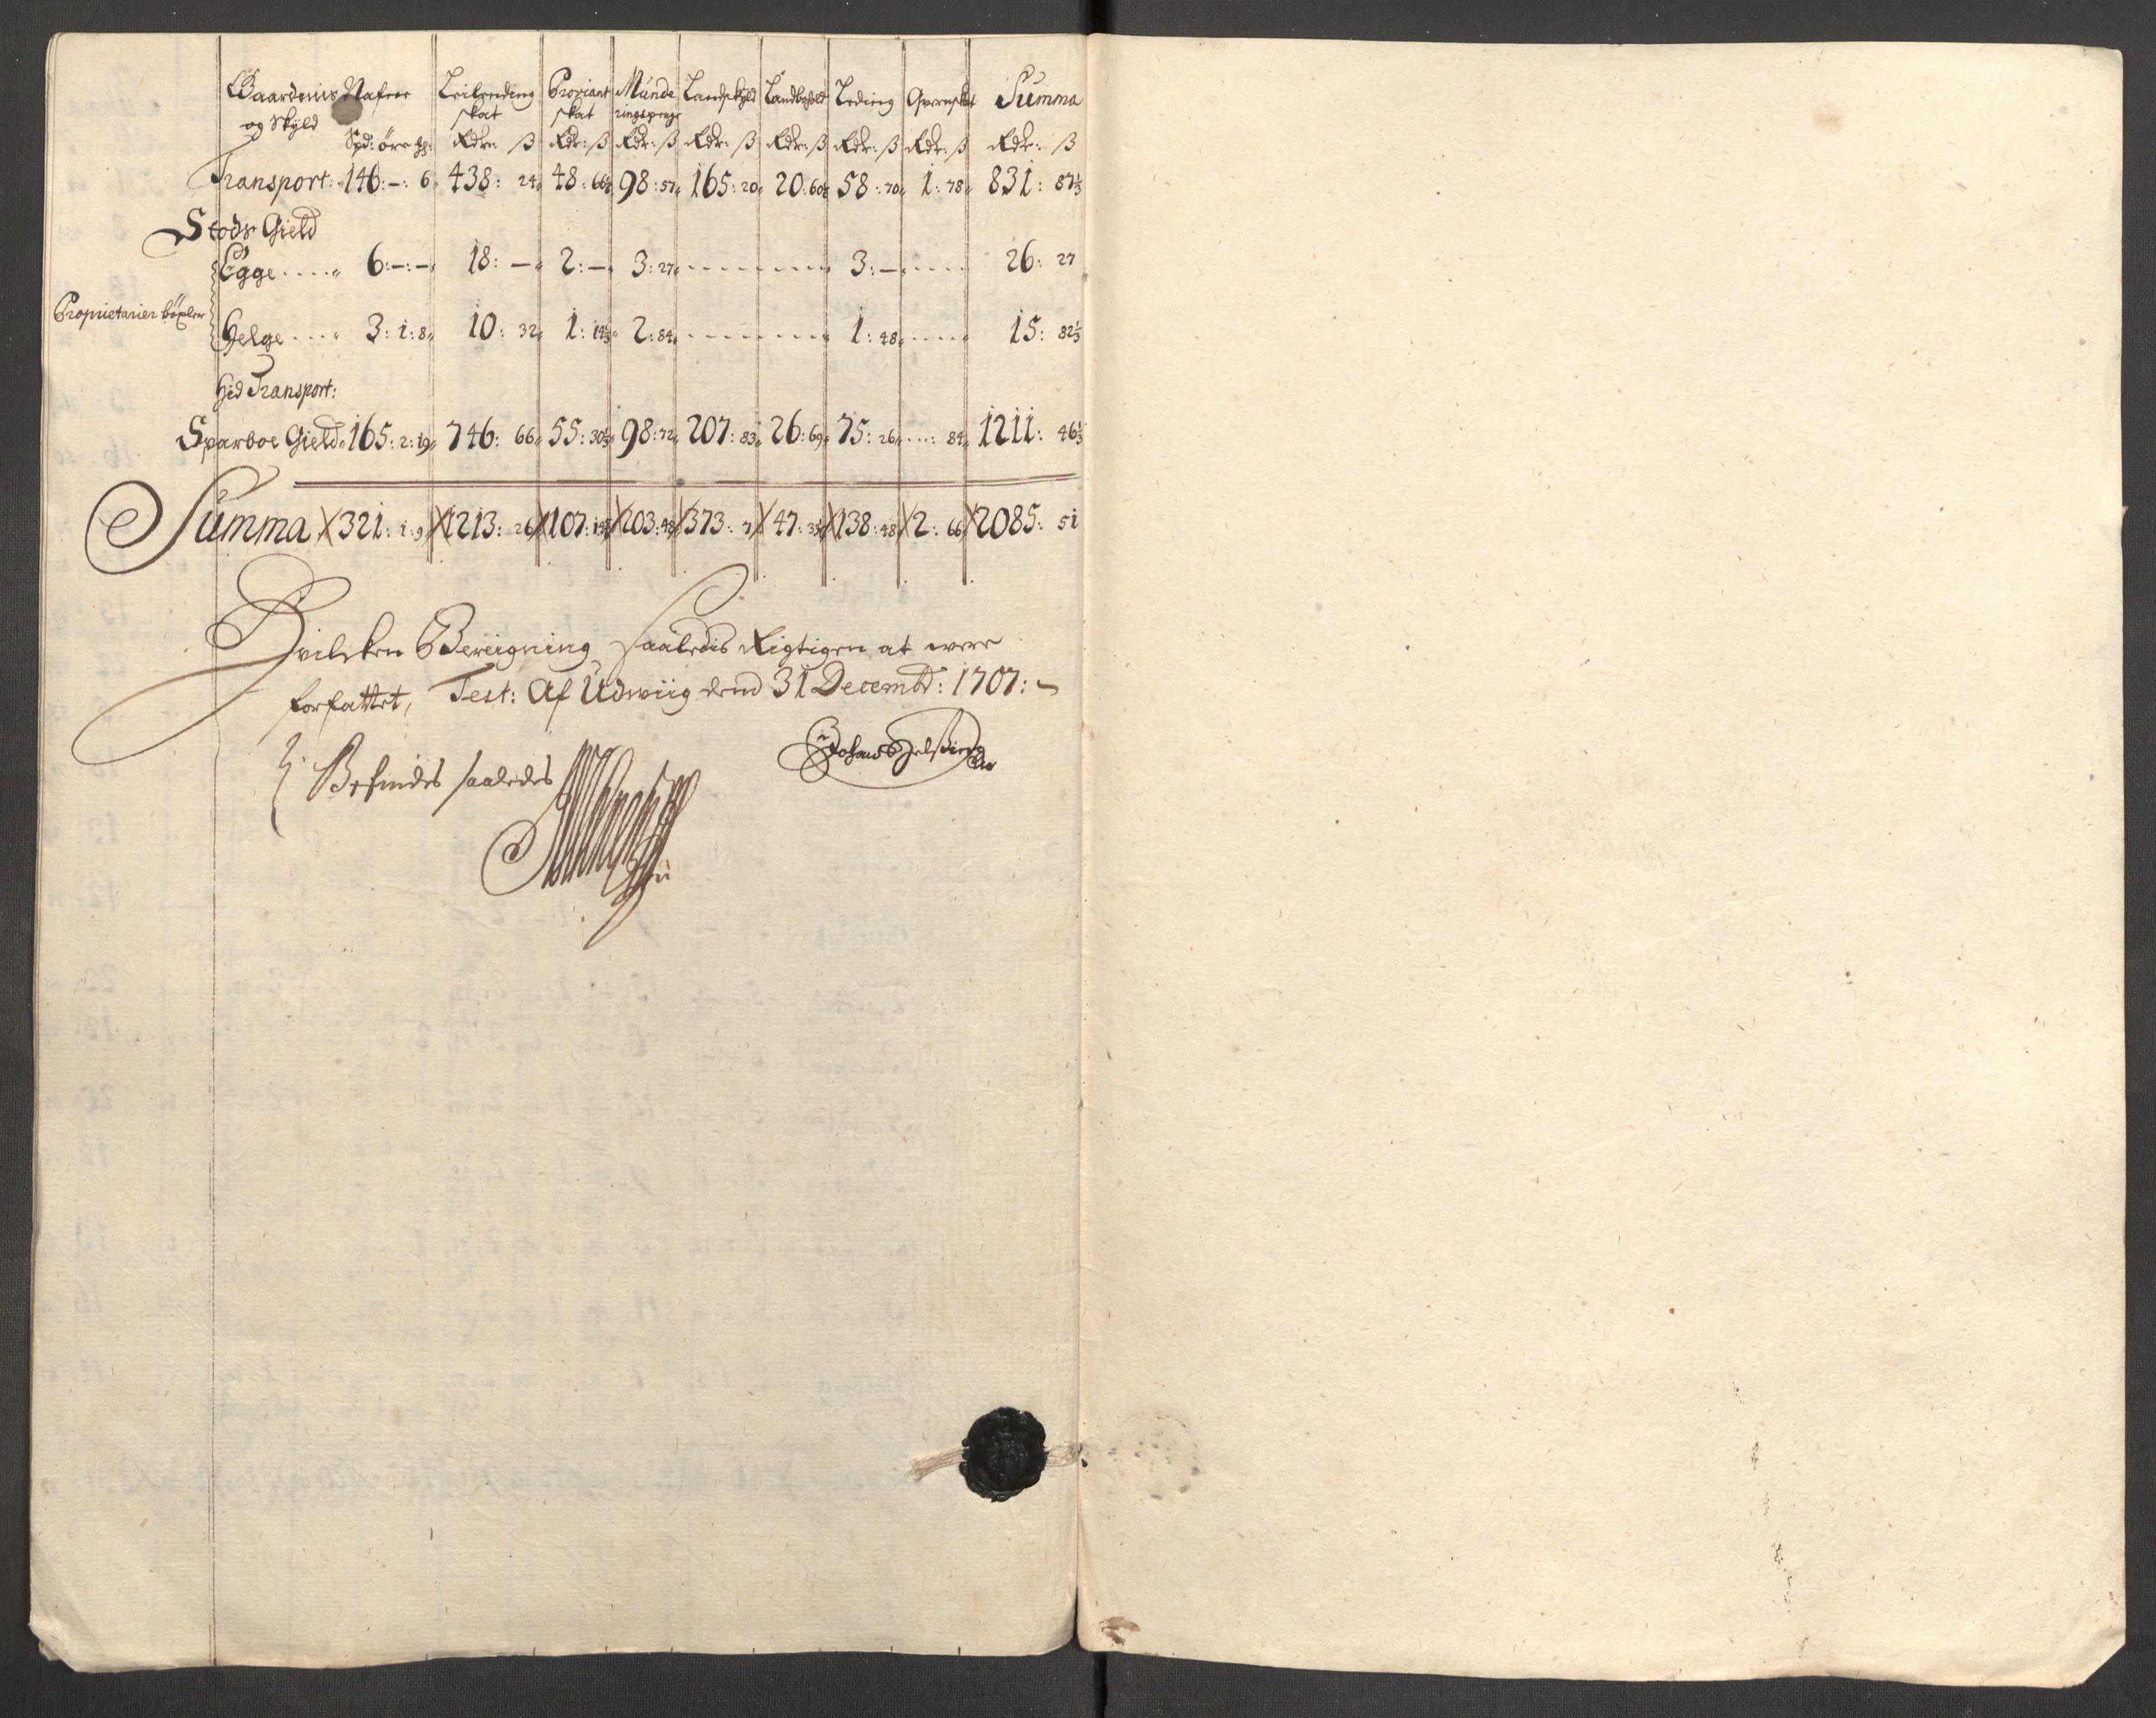 Gaardenis Nafne Leilending Proviant Munde Landskyld Landbohold Leding Qvernskat Summa
og Skyld skat skat ringspenge
Spd: öre Rdr: ß Rdr: ß Rdr: ß Rdr: ß Rdr: ß Rdr: ß Rdr: ß Rdr: ß
Transport: 146:-: 6 438: 24 48: 66 98: 57 165: 20 20: 60 58: 70 1: 78 831: 87⅓
Stods Gield
Egge 6:-:- 18: - 2: - 3: 27 3: - 26: 27
Proprietarier böxler
Helge 3: 1: 8 10: 32 1: 14⅓ 2: 84 1: 48 15: 82⅓
Hid Transport:
Sparboe Gield 165: 2: 19 746: 66 55: 30⅓ 98: 72 207: 83 26: 69 75: 26 84 1211: 46⅓
Summa 321: 1: 9 1213: 26 107: 203: 48 373: 7 47: 138: 48 2: 66 2085: 51
Hvilcken Bereigning saaledis Rigtigen at were
forfattet, Test: Af Udwiig dend 31 Decembr: 1707:
Befindes saaledes